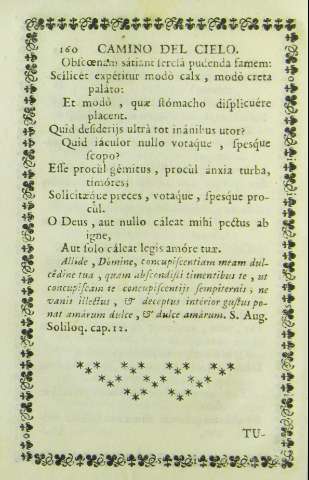 160 CAMINO DEL CIELO.
Obscœnam sátiant sercla pudenda famem:
Scílicet expétitur modò calx, modò creta
paláto:
Et modò, quæ stómacho displicuére
placent.
Quid desiderijs ultrà tot inánibus utor?
Quid iáculor nullo votaque, spesque
scopo?
Esse procùl gémitus, procùl ánxia turba,
timóres;
Solicitæque preces, votaque, spesque pro-
cùl.
O Deus, aut nullo cáleat mihi pectus ab
igne,
Aut solo cáleat legis amóre tuæ.
Allide, Dómine, concupiscentiam meam dul-
cédine tua, quam abscondisti timentibus te, ut
concupiscam te concupiscentijs sempiternis; ne
vanis illectus, & deceptus intérior gustus po-
nat amárum dulce, & dulce amárum. S. Aug.
Soliloq. cap. 12.
TU-